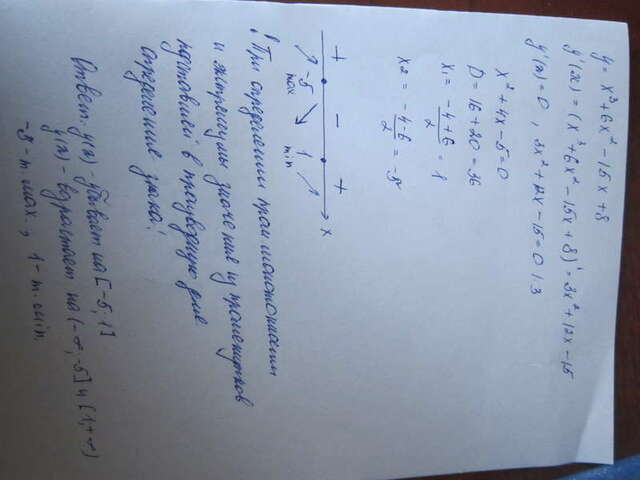 y = x³+6x²-15x+8
y'(x) = (x³+6x²-15x+8)' = 3x²+12x-15
y'(x)=0, 3x²+12x-15=0 |:3
x²+4x-5=0
D = 16+20=36
x₁ = (-4+6)/2 = 1
x2 = (-4-6)/2 = -5
+ - +
-5 1 x
max min
! При определении пром. монотонности
и экстремумы значения из промежутков
подставляй в производную для
определения знака!
Ответ: y(x) - убывает на [-5;1]
y(x) - возрастает на (-∞;-5] и [1;+∞)
-5 - т. max., 1 - т. min.